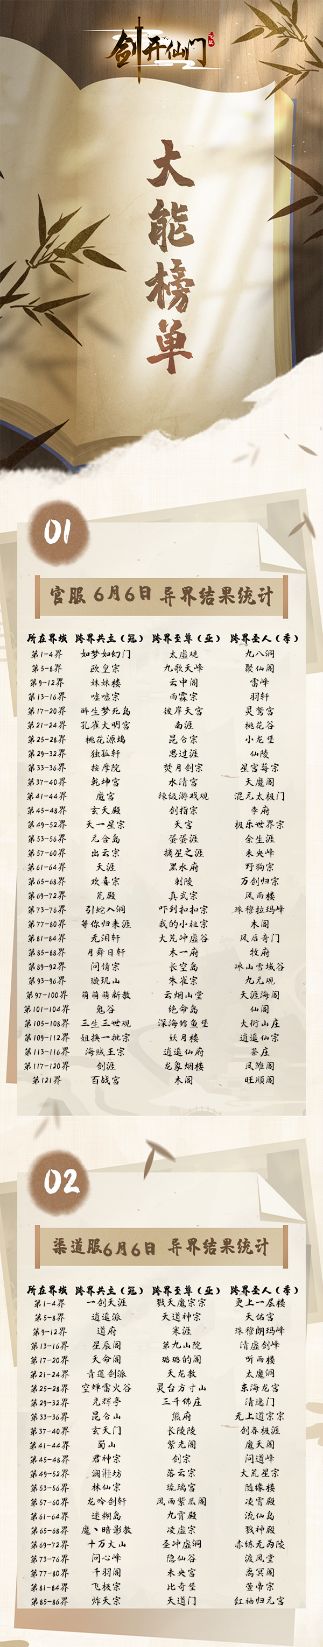 剑开仙门
大能榜单
01
官服 6月6日 异界结果统计
所在界域 跨界共主(冠) 跨界至尊(亚) 跨界圣人(季)
第1-4界 如梦如幻门 太虚境 九八洞
第5-8界 欧皇宗 九歌天峰 聚仙阁
第9-12界 妹妹楼 云中阁 雷峰
第13-16界 哇哇宗 雨霖宗 羽轩
第17-20界 醉生梦死岛 彼岸天宫 灵鸳宫
第21-24界 孔雀大明宫 南涯 桃花谷
第25-28界 桃花源坞 昆仑宗 小龙堡
第29-32界 独孤轩 思过涯 仙陵
第33-36界 按摩院 焚月剑宗 星宫莓宗
第37-40界 乾坤宫 水清宫 天魔阁
第41-44界 魔宫 辣级游戏观 混元太极门
第45-48界 玄天殿 剑指宗 李府
第49-52界 天一星宗 天宫 极乐世界宗
第53-56界 元合岛 蛋蛋涯 余生涯
第57-60界 出云宗 摘星之涯 未央峰
第61-64界 天涯 黑水府 野狗宗
第65-68界 欢喜宗 剑陵 万剑归宗
第69-72界 荒殿 真武宗 风雨楼
第73-76界 引蛇入洞 吓到扣扣宗 珠穆拉玛峰
第77-80界 等你归来涯 我的小社宗 木阁
第81-84界 无泪轩 大荒冲虚谷 风后奇门
第85-88界 月舜日轩 木一府 牧府
第89-92界 问情宗 长空岛 冰山雪域谷
第93-96界 璇玑山 朱雀宗 九元观
第97-100界 萌萌萌新教 云烟山堂 天涯海阁
第101-104界 鬼谷 绝命岛 仙阁
第105-108界 三生三世观 深海鲶鱼堡 大衍山庄
第109-112界 姐换一批宗 妖月楼 逍遥仙宗
第113-116界 海贼王宗 逍遥仙府 茶庄
第117-120界 剑涯 龙象烟楼 凤雏阁
第121界 百战宫 木阁 旺顺阁
02
渠道服6月6日 异界结果统计
所在界域 跨界共主(冠) 跨界至尊(亚) 跨界圣人(季)
第1-4界 一剑天涯 戮天魔宗宗 更上一层楼
第5-8界 逍遥派 天道神宗 天佑宫
第9-12界 道府 米涯 珠穆朗玛峰
第13-16界 星辰阁 第九山院 清虚剑峰
第17-20界 天命阁 璐璐的阁 听雨楼
第21-24界 青莲剑派 天龙教 太魔洞
第25-28界 空蝉雷火谷 灵台方寸山 东海龙宫
第29-32界 光辉亭 三千佛庄 清逸门
第33-36界 昆仑山 熊府 无上道宗宗
第37-40界 玄天门 长陵陵 剑春极涯
第41-44界 蜀山 紫光阁 魔天阁
第45-48界 君神宗 剑宗 问道峰
第49-52界 澜湘坊 落云宗 大荒星宗
第53-56界 林仙宗 琉璃宫 随缘楼
第57-60界 龙吟剑轩 风雨紫巫阁 凌霄殿
第61-64界 迷糊岛 九霄殿 流仙岛
第65-68界 魔丶暗影教 凌虚宗 戮神殿
第69-72界 十万大山 圣冲虚洞 赤练无为陵
第73-76界 问心峰 隐仙谷 渡风堂
第77-80界 千羽阁 未央宫 离冥阁
第81-84界 飞极宗 比奇堡 萱帝宗
第85-86界 炸天宗 天道门 红袖归元宫